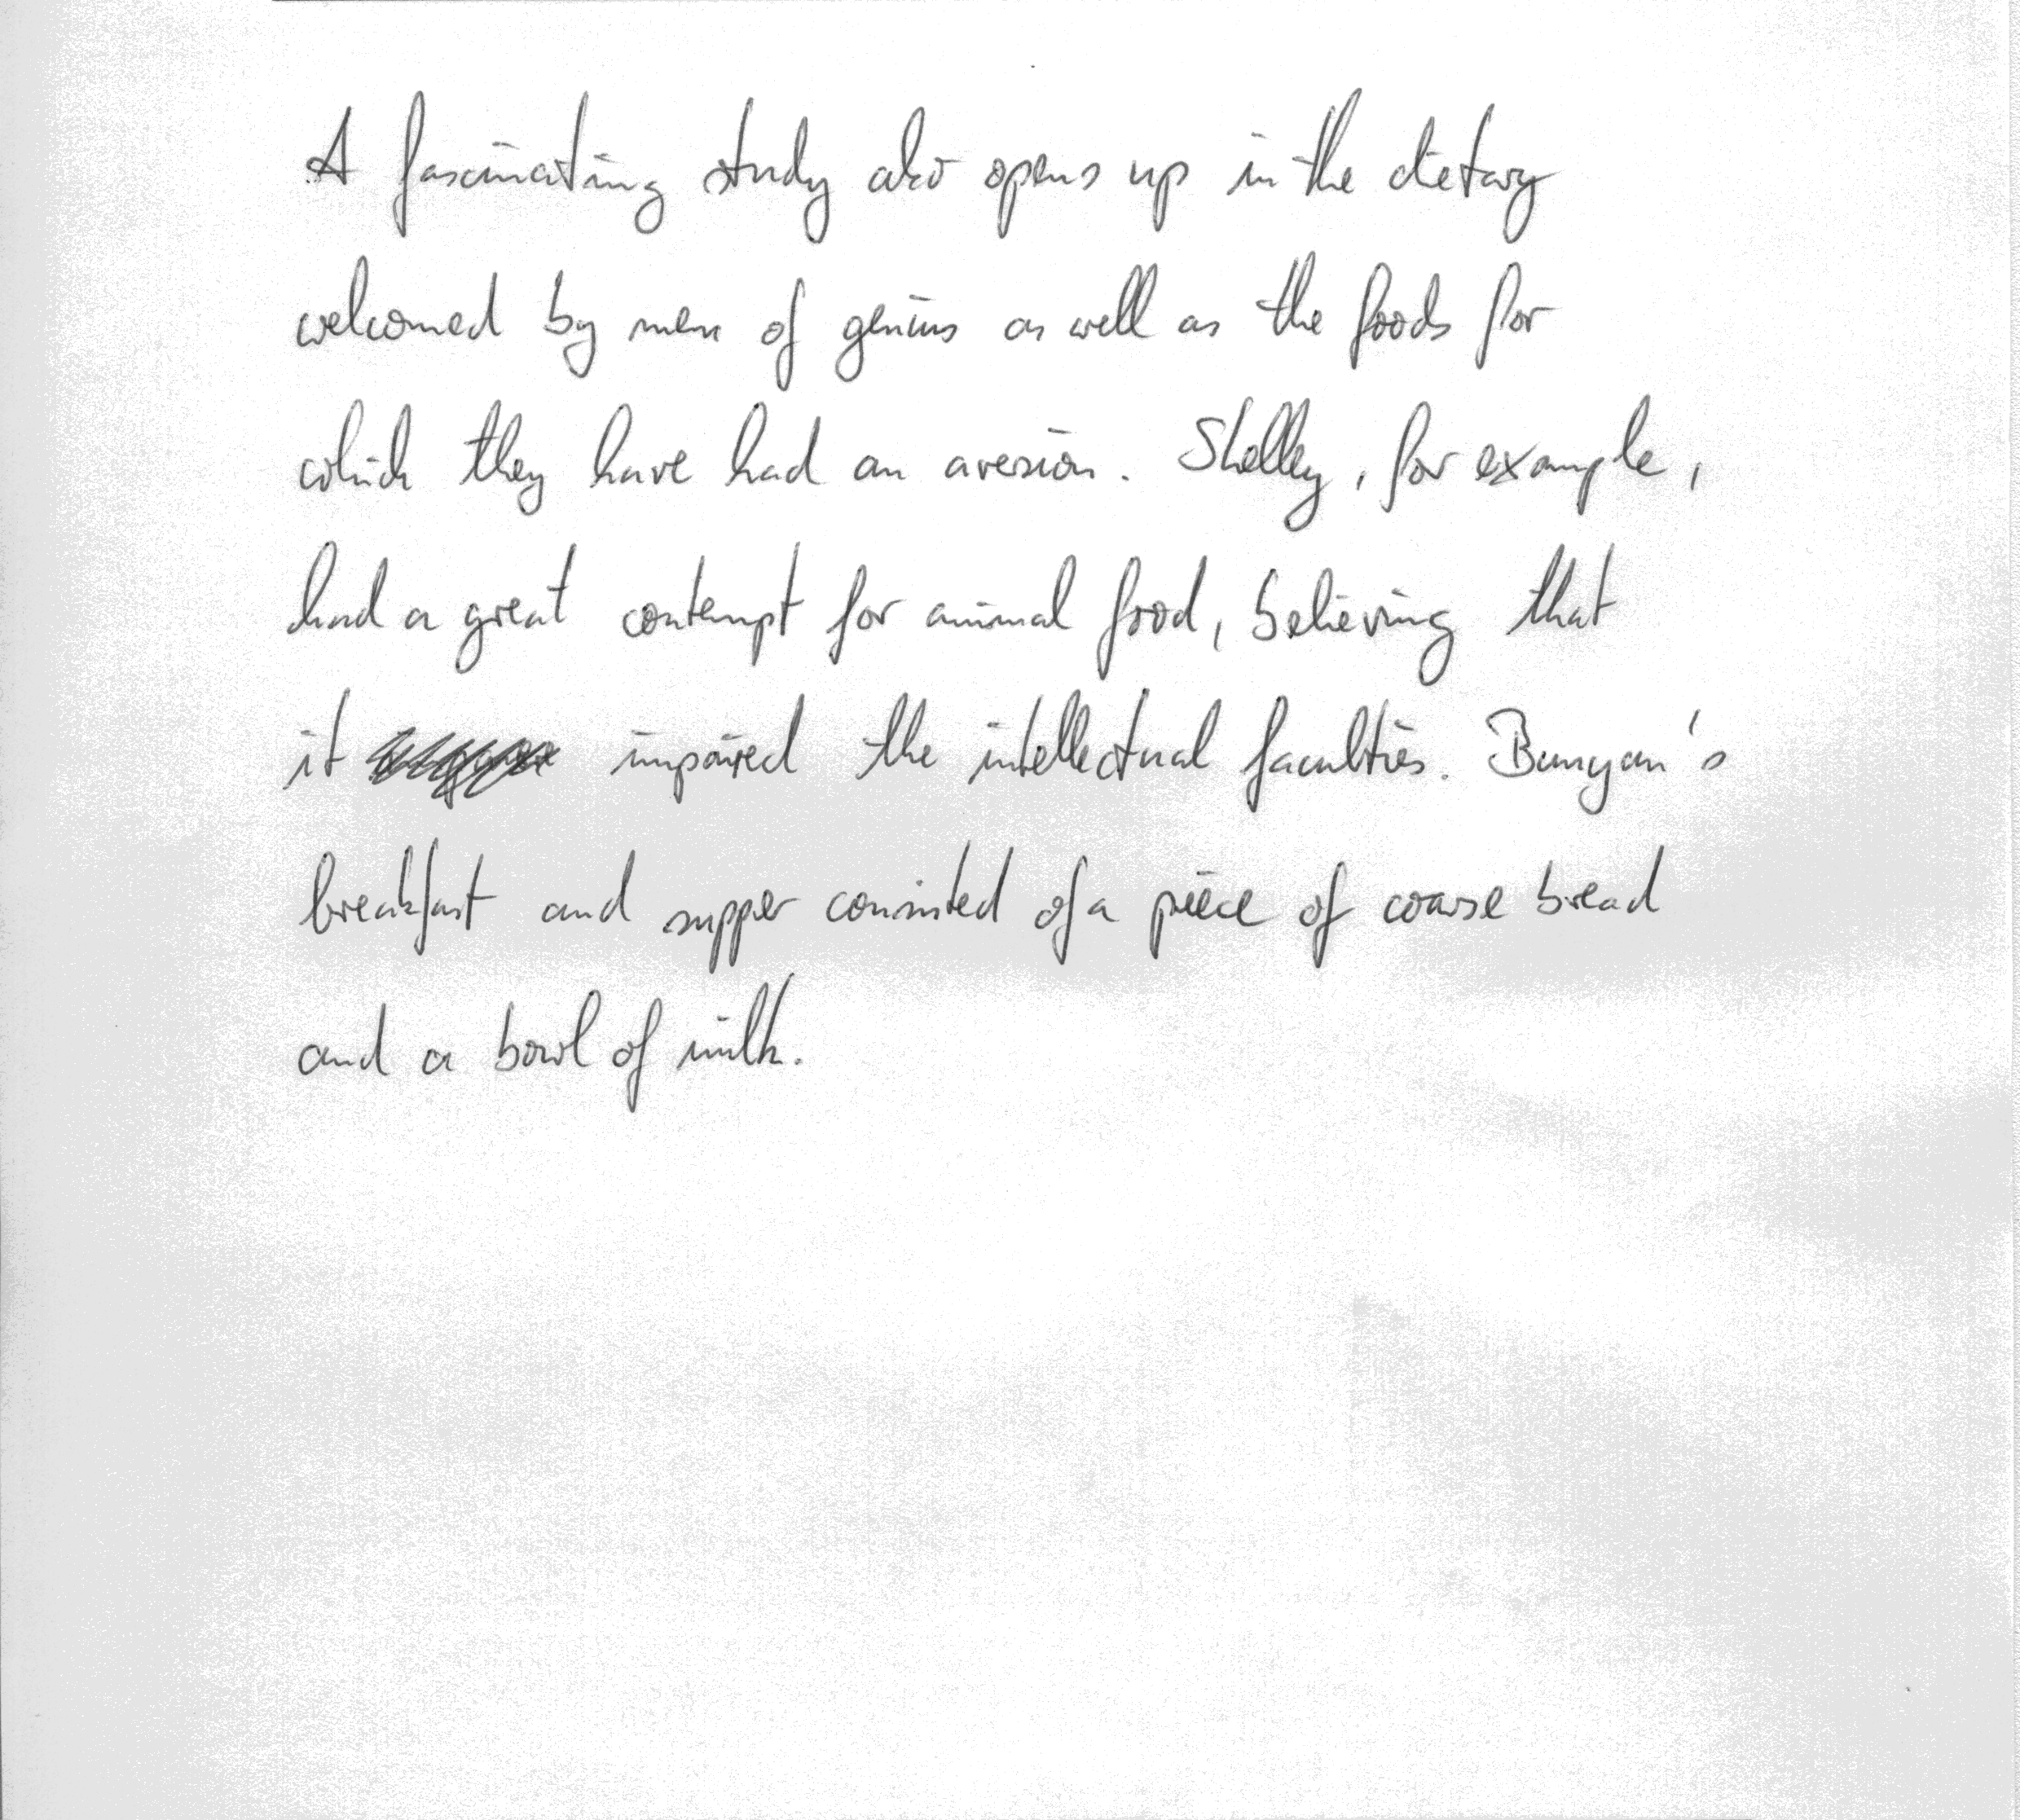 A fascinating study also opens up in the dietary
welcomed by men of genius as well as the foods for
which they have had an aversion. Shelley, for example,
had a great contempt for animal food, believing that
it impaired the intellectual faculties. Bunyan's
breakfast and supper consisted of a piece of coarse bread
and a bowl of milk.